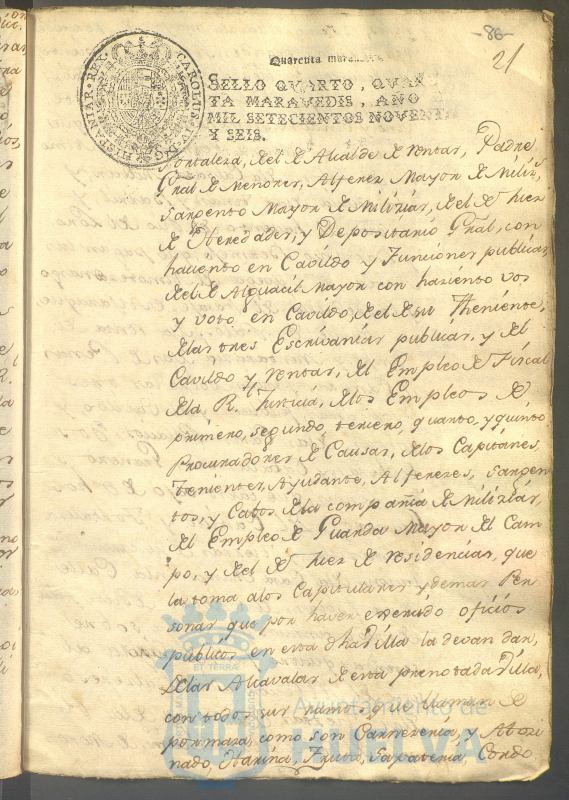 -86-
21
Quarenta maravedis
SELLO QVARTO, QVAREN
TA MARAVEDIS, AÑO
MIL SETECIENTOS NOVENTA
Y SEIS.
CAROLUS IV D G HISPANIAR REX
fortaleza, del de Alcalde de rentas, Padre
Gral de Menores, Alferez Mayor de Miliz.s
Sargento Mayor de Milizias, del de Juez
de Heredades, y Depositario Gral, con
haciento en Cavildo y Funciones publicas,
del de Alguacil mayor con haziento vos
y voto en Cavildo, del de su Theniente,
de las tres Escrivanias publicas, y del
Cavildo y rentas, del Empleo de Fiscal
de la R. Justicia, de los Empleos de
primero, segundo, tercero, quarto, y quinto
Procuradores de Causas, de los Capitanes
Tenientes, Ayudante, Alferezes, Sargen
tos, y Cabos de la compañia de Milizias,
del Empleo de Guarda Mayor del Cam
po, y del de Juez de residencias, que
la toma a los Capitulares y demas Per
sonas que por haver exercido oficios
publicos en esta dha Villa la devan dar,
de las Alcavalas de esta prenotada Villa,
con todos sus ramos que llaman de
por maza, como son Carneceria, y
Harina, Fruta, Sapateria, Cordo
Ayuntamiento de
HUELVA